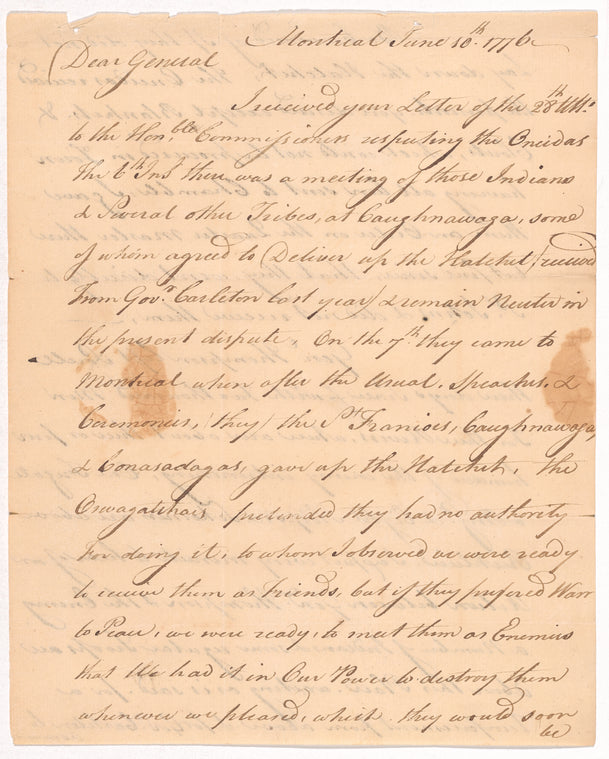 Montreal June 10th. 1776
Dear General
I received your Letter of the 28th Ulto.
to the Honble. Commissioners respecting the Oneidas
The 6th Inst there was a meeting of those Indians
& Several other Tribes, at Caughnawaga, some
of whom agreed to Deliver up the Hatchet (received
From Govr. Carleton last year) & remain Neuter in
the present dispute, On the 7th. they came to
Montreal when after the Usual, Speaches, &
Ceremonies, (they) the St. Franiois, Caughnawaga,
& Conasadagas, gave up the Hatchet, the
Oswagatihais pretended they had no authority
For doing it, to whom I observed we were ready
to receive them as Friends, but if they prefered Warr
to Peace, we were ready, to meet them as Enemies
that We had it in Our Power to destroy them
whenever we pleased, which they would soon
be